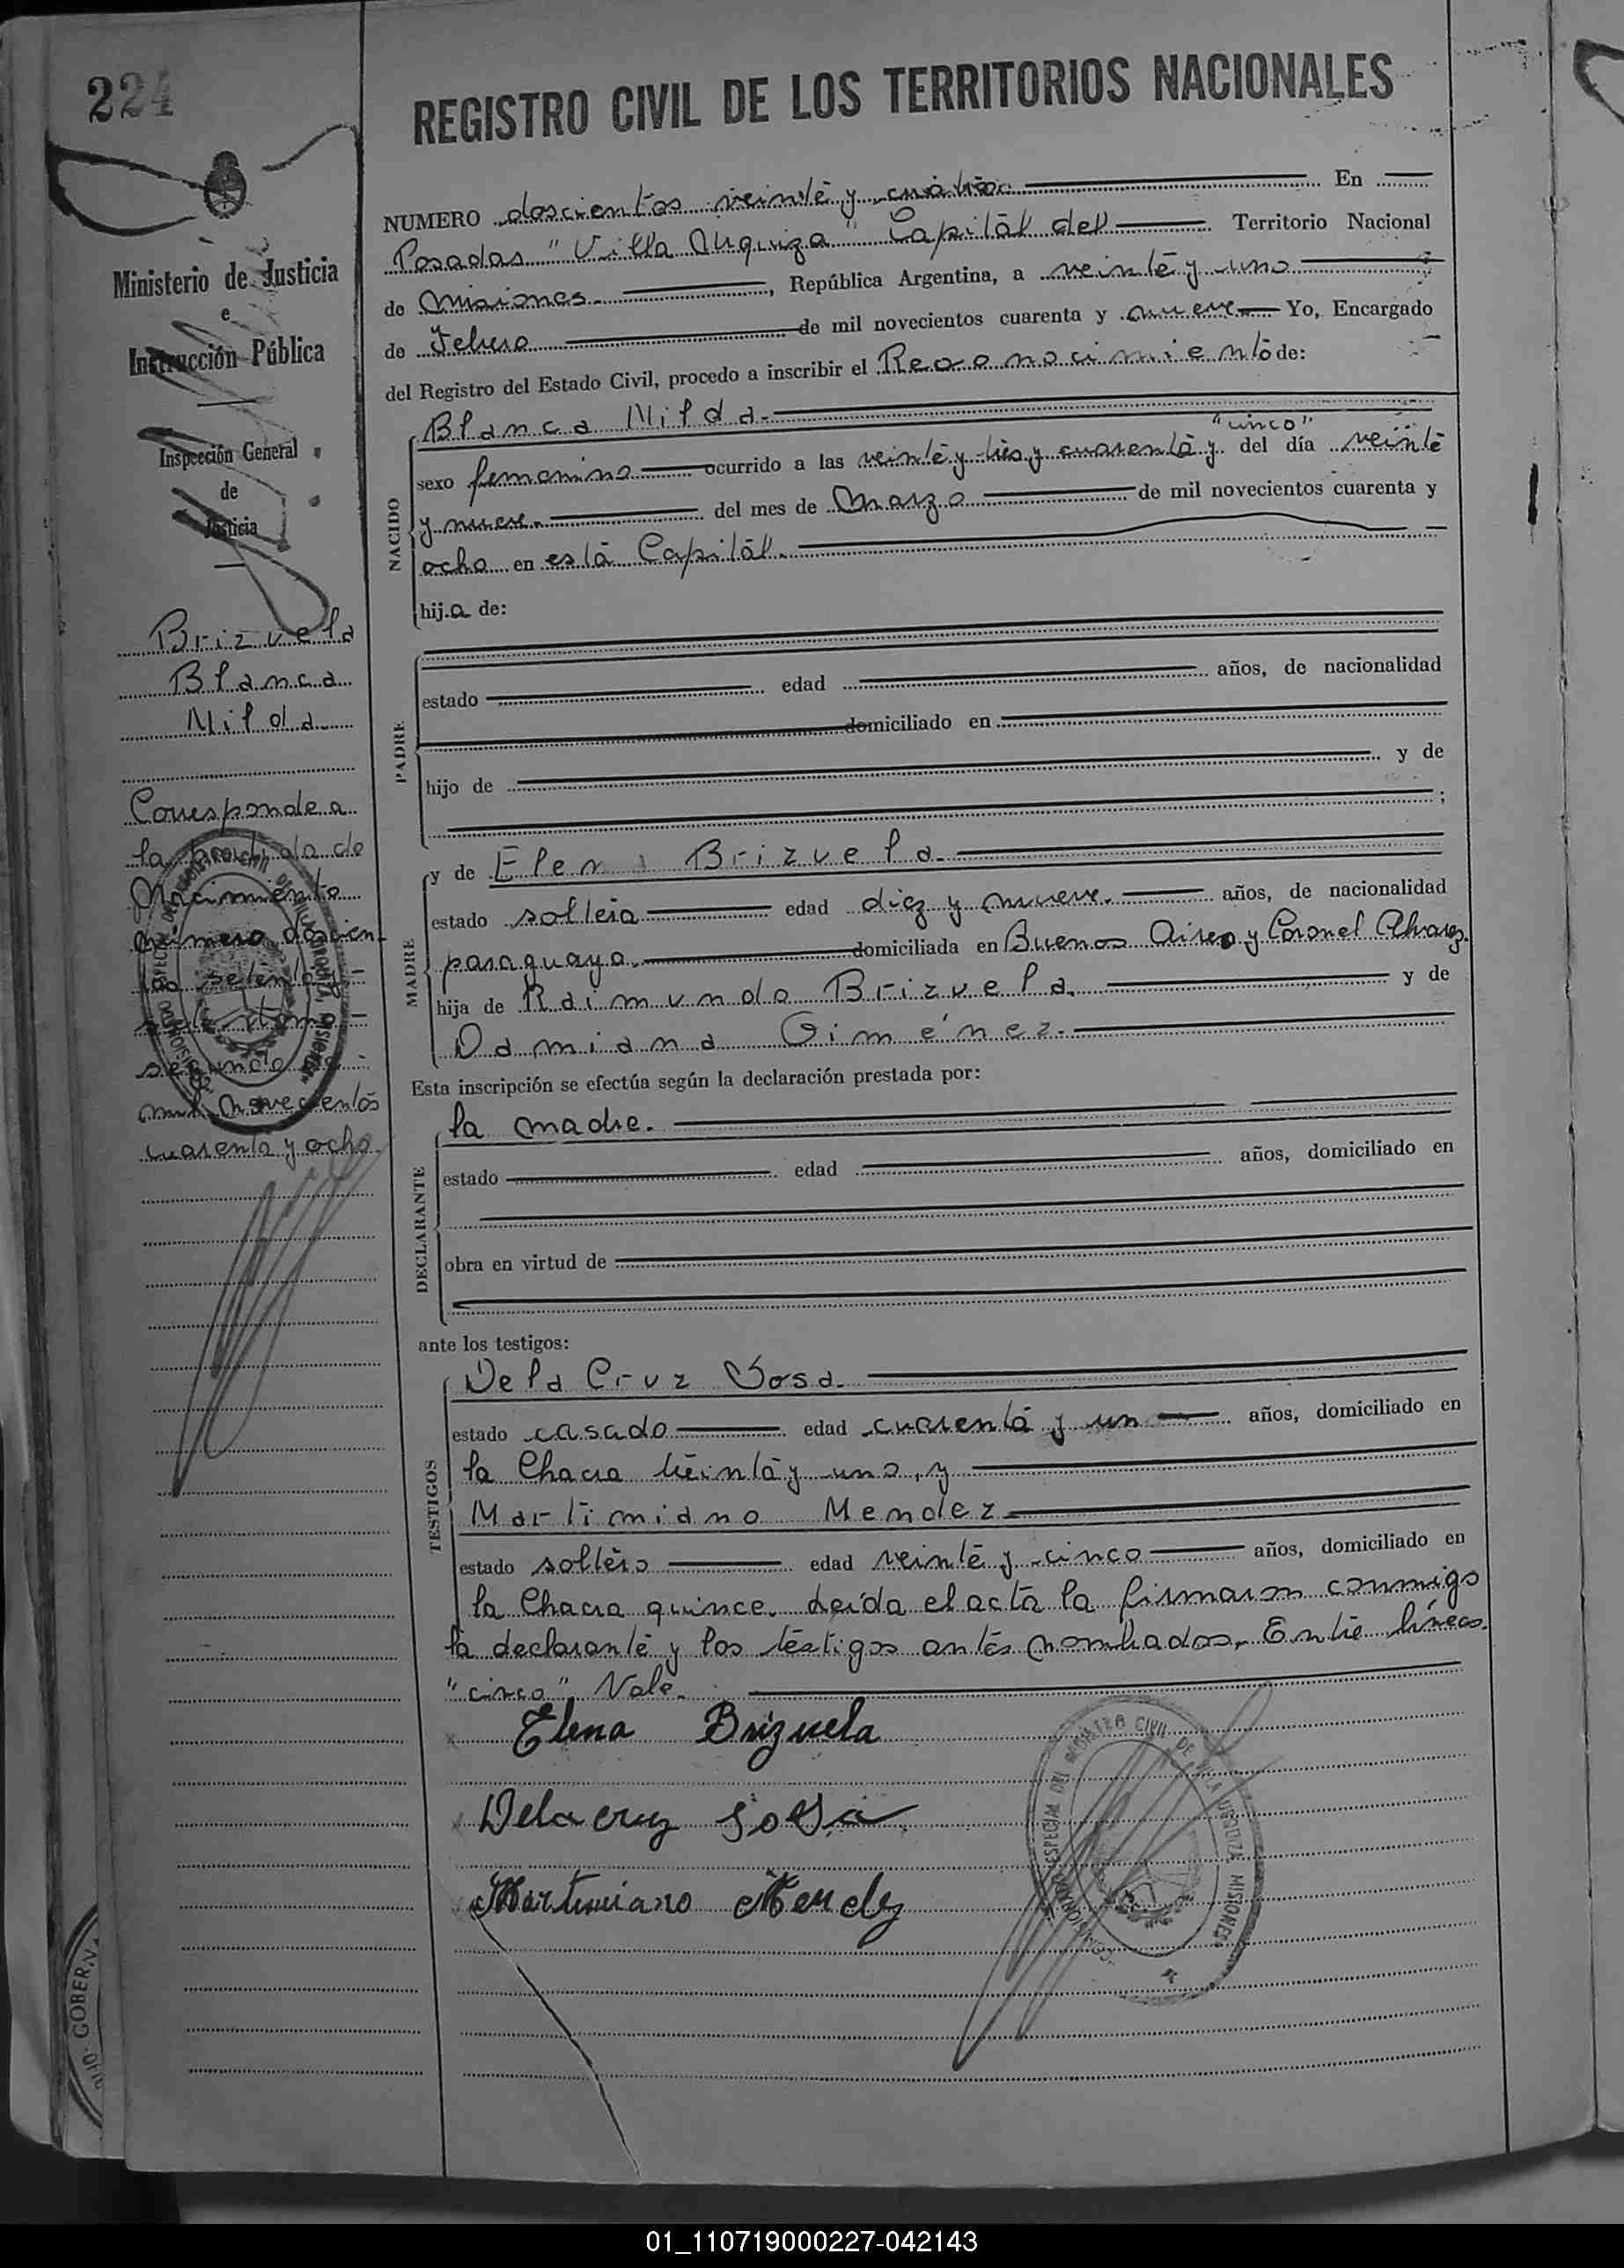 224
REGISTRO CIVIL DE LOS TERRITORIOS NACIONALES
Ministerio de Justicia
e
Instrucción Pública
Inspección General
de
Justicia
Brizuela
Blanca
Nilda
Corresponde a
la partida de
Nacimiento
número doscien-
tos setenta y
tomo
segundo
mil novecientos
cuarenta y ocho
NUMERO doscientos veinte y cuatro En
Posadas "Villa Urquiza" Capital del Territorio Nacional
de Misiones. , República Argentina, a veinte y uno
de Febrero de mil novecientos cuarenta y nueve Yo, Encargado
del Registro del Estado Civil, procedo a inscribir el Reconocimiento de:
NACIDO
Blanca Nilda.
"cinco"
sexo femenino ocurrido a las veinte y tres y cuarenta y del día veinte
y nueve. del mes de Marzo de mil novecientos cuarenta y
ocho en esta Capital.
hija de:
PADRE
estado edad años, de nacionalidad
domiciliado en
hijo de y de
;
MADRE
y de Elena Brizuela.
estado soltera edad diez y nueve. años, de nacionalidad
paraguaya. domiciliada en Buenos Aires y Coronel Alvarez.
hija de Raimundo Brizuela. y de
Damiana Giménez.
Esta inscripción se efectúa según la declaración prestada por:
DECLARANTE
la madre.
estado edad años, domiciliado en
obra en virtud de
ante los testigos:
TESTIGOS
Dela Cruz Sosa.
estado casado edad cuarenta y un años, domiciliado en
la Chacra treinta y uno, y
Martimiano Mendez
estado soltero edad veinte y cinco años, domiciliado en
la Chacra quince. Leída el acta la firmaron conmigo
la declarante y los testigos antes nombrados. Entre líneas.
"cinco" Vale.
Elena Brizuela
Dela cruz Sosa
Martimiano Mendez
ESPECIAL DEL REGISTRO CIVIL DE VILLA URQUIZA MISIONES
GOBERNA
01_110719000227-042143